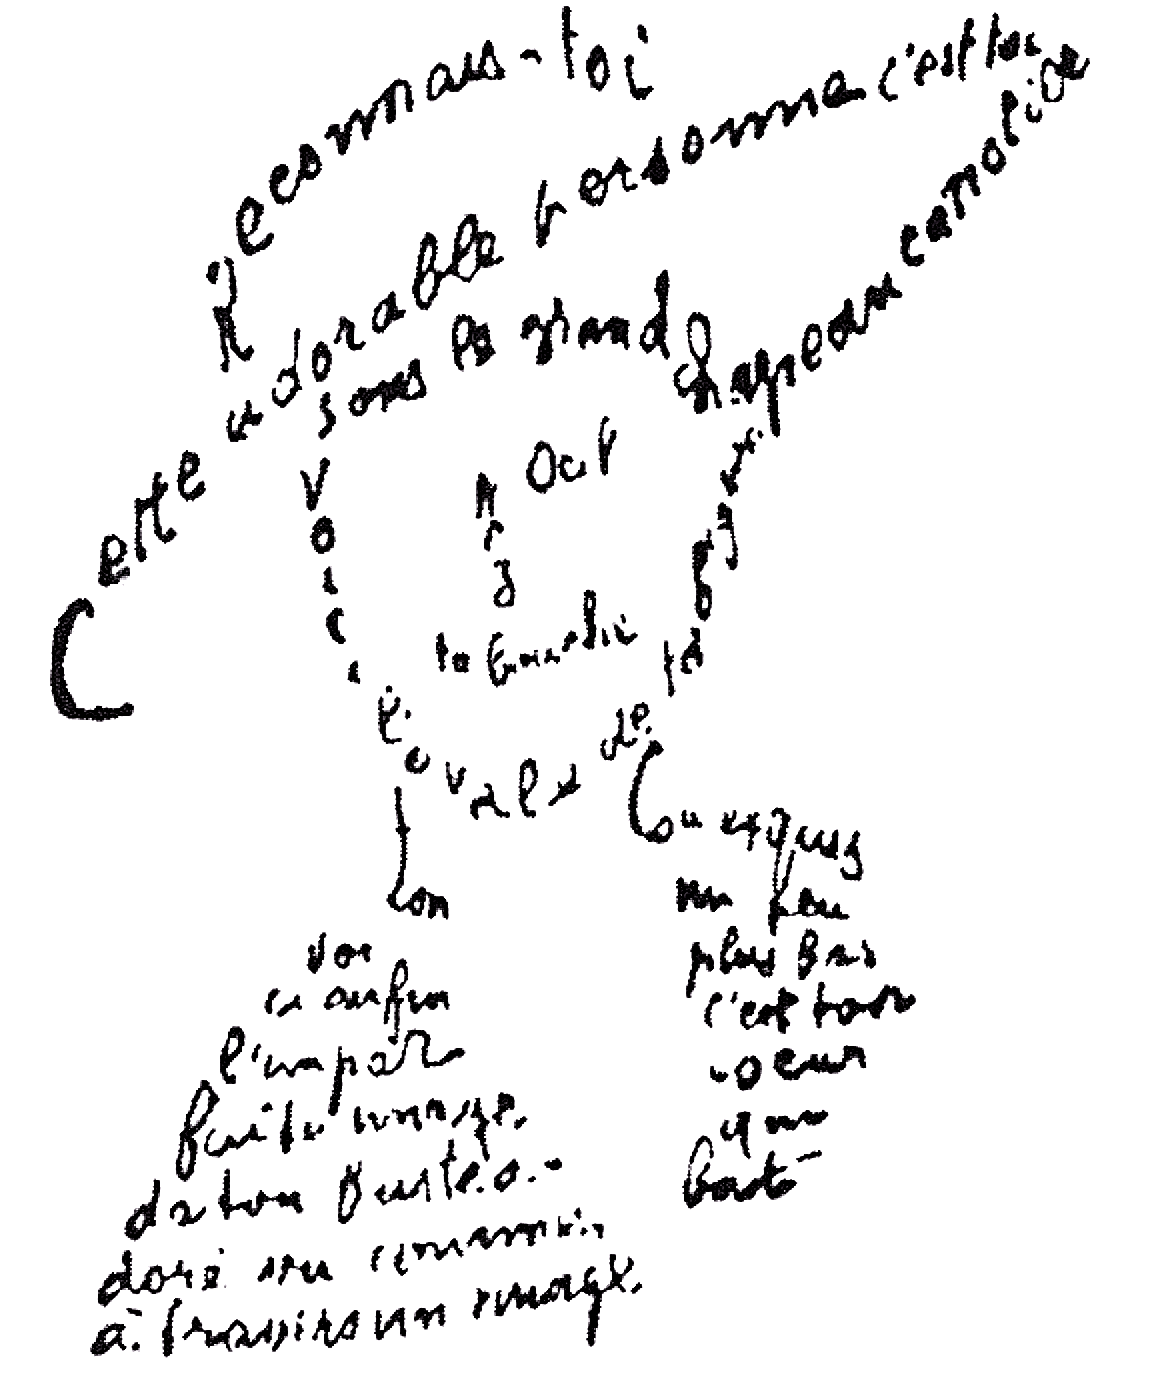 Reconnais-toi
Cette adorable personne c'est toi
sous le grand chapeau canotier
Oeil
Nez
ta bouche
Voici
l'ovale de
ta figure
ton
cou exquis
voi
ci enfin
l'impar
faite image
de ton buste a
doré vu comme
à travers un nuage
un peu
plus bas
c'est ton
coeur
qui
bat